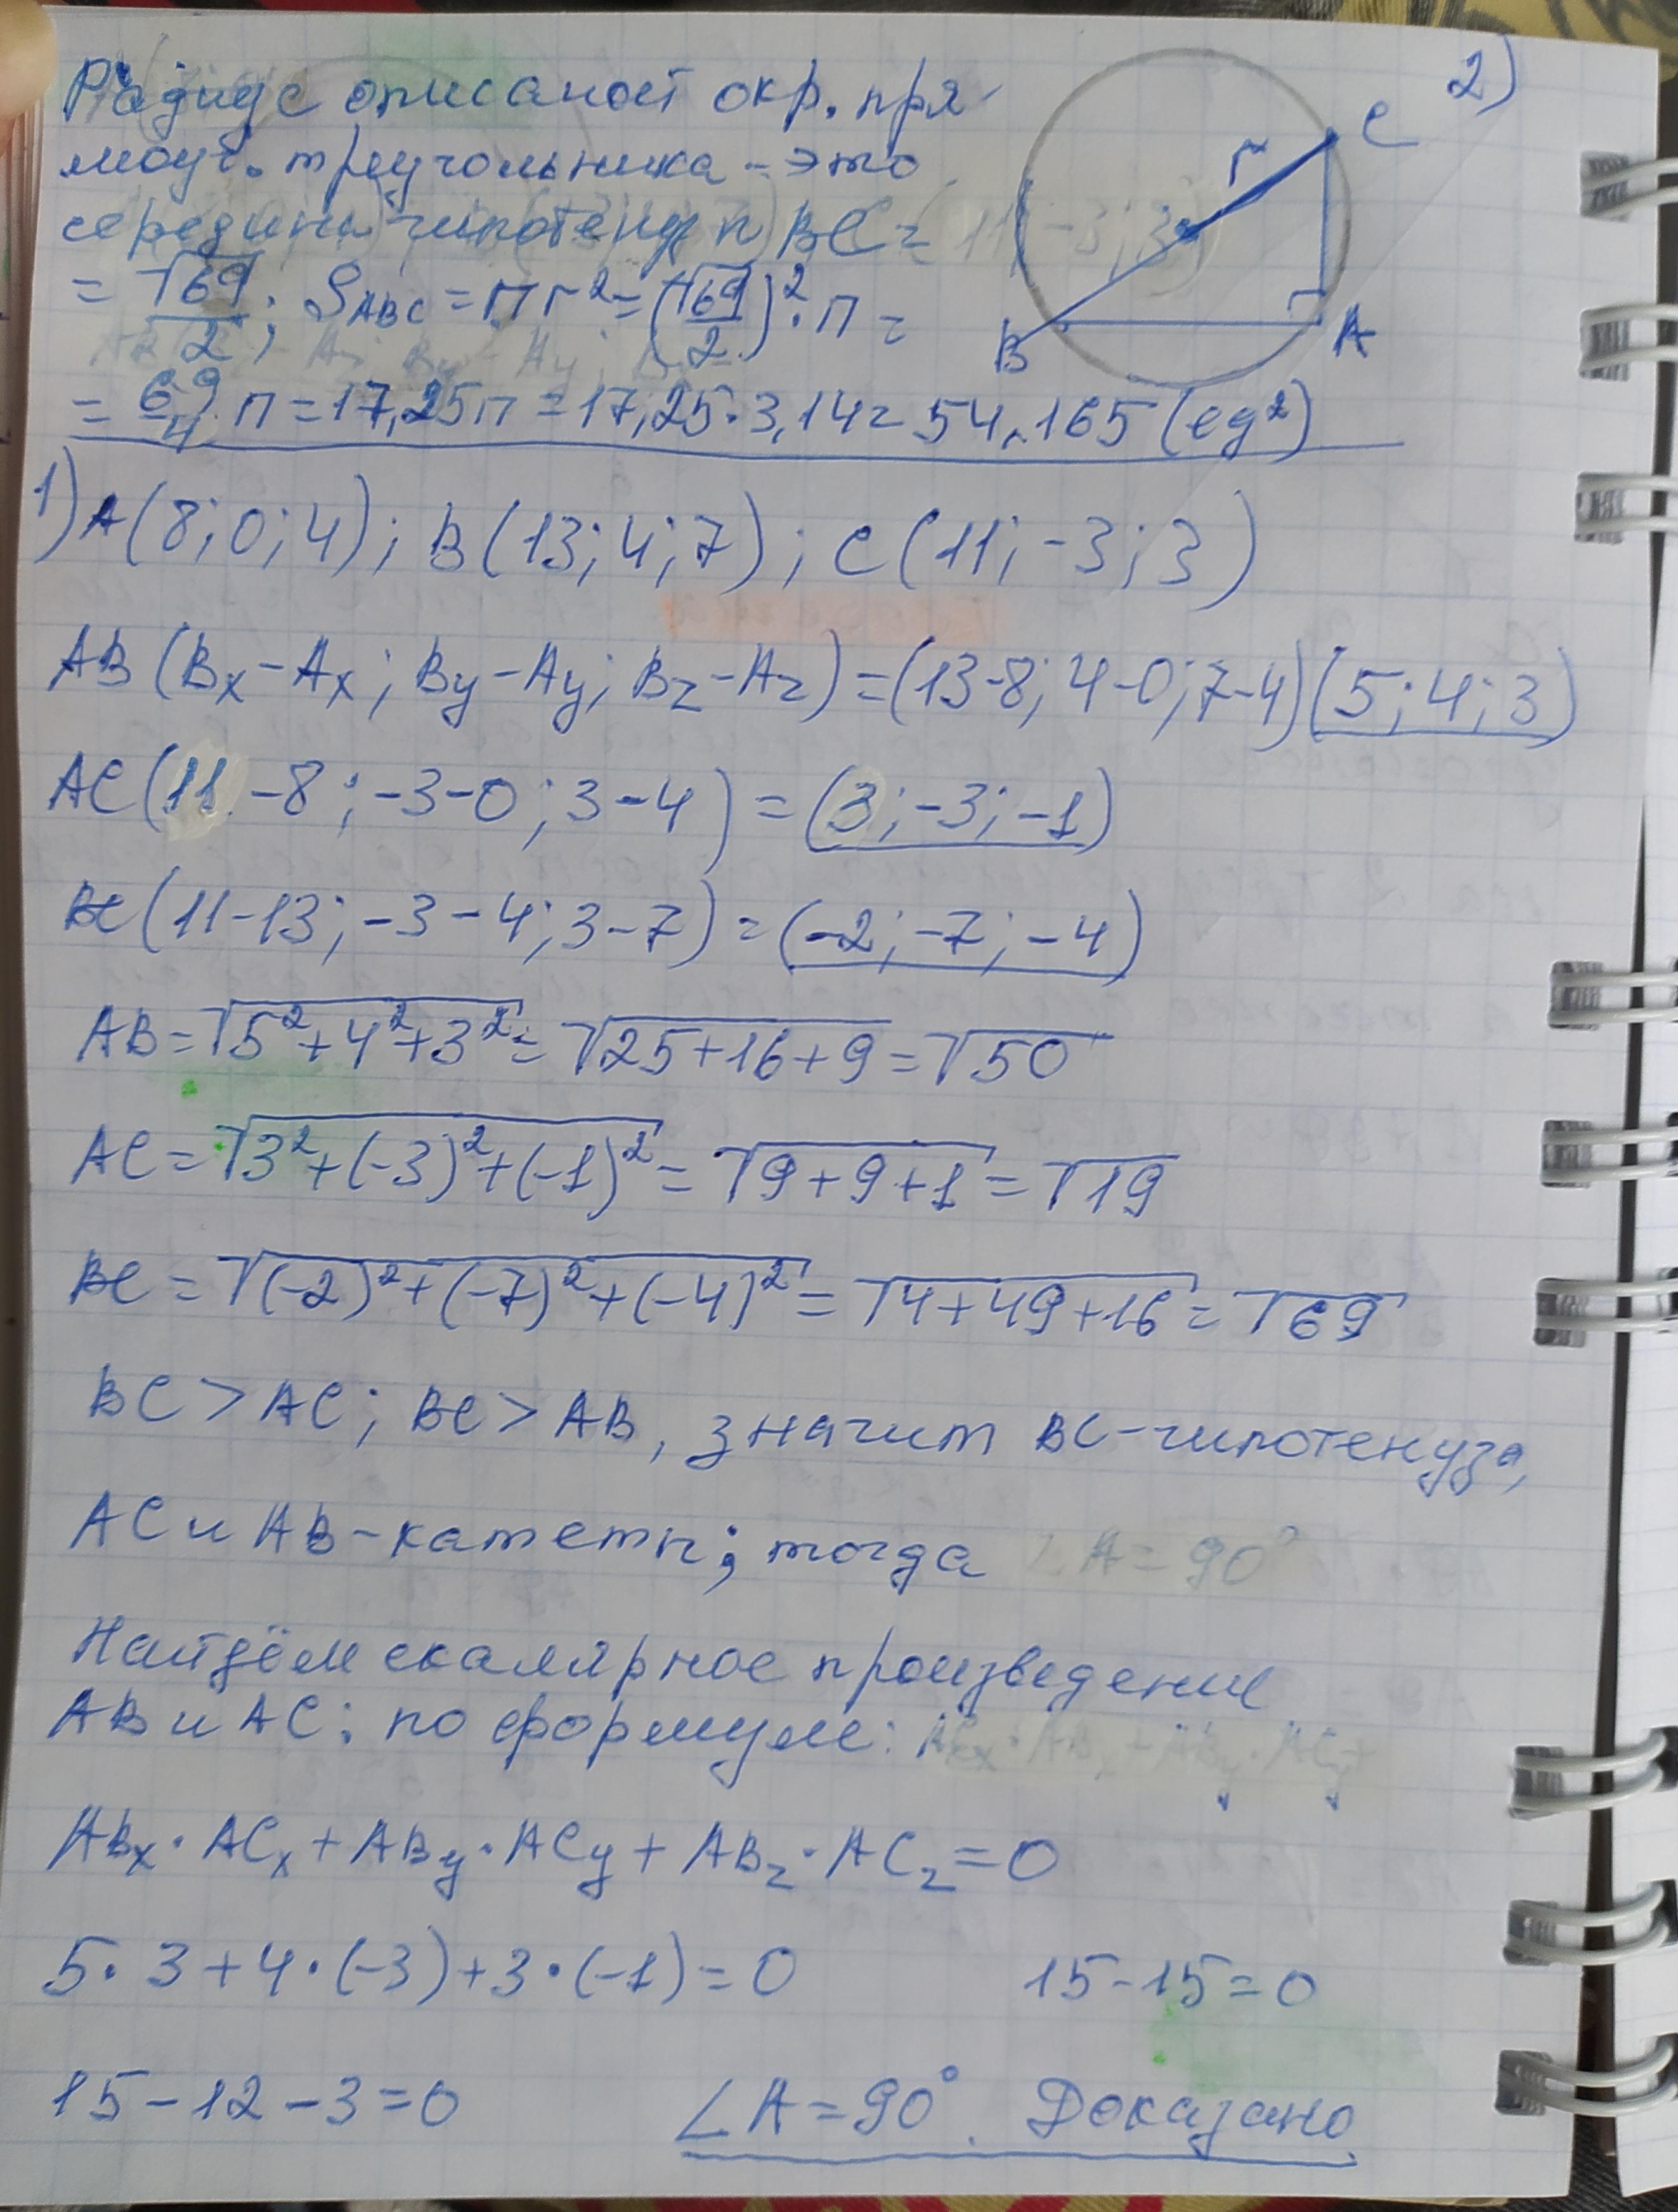 2)
Радиус описаной окр. пря
моуг. треугольника - это
середины гипотенузы BC =
= √69/2; S_ABC = Пr² = (√69/2)²·П =
= 69/4 П = 17,25П = 17,25·3,14 = 54,165 (ед²)
C
r
B
A
1) A(8;0;4); B(13;4;7); C(11;-3;3)
AB(Bx-Ax; By-Ay; Bz-Az) = (13-8; 4-0; 7-4)(5;4;3)
AC(11-8; -3-0; 3-4) = (3;-3;-1)
BC(11-13; -3-4; 3-7) = (-2;-7;-4)
AB = √5²+4²+3² = √25+16+9 = √50
AC = √3²+(-3)²+(-1)² = √9+9+1 = √19
BC = √(-2)²+(-7)²+(-4)² = √4+49+16 = √69
BC > AC; BC > AB, значит BC-гипотенуза,
AC и AB-катеты; тогда ∠A = 90°
Найдём скалярное произведение
AB и AC: по формуле:
ABx·ACx + ABy·ACy + ABz·ACz = 0
5·3+4·(-3)+3·(-1) = 0 15-15=0
15-12-3=0 ∠A=90°. Доказано